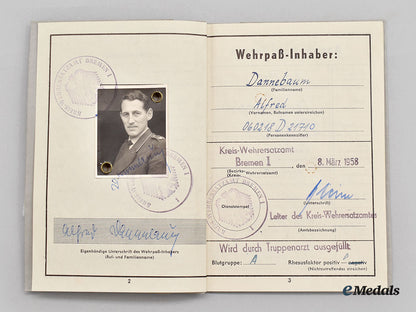 KREISWEHRERSATZAMT BREMEN I
Alfred Dannebaum
Eigenhändige Unterschrift des Wehrpaß-Inhabers
(Ruf- und Familienname)
2
Wehrpaß-Inhaber:
Dannebaum
(Familienname)
Alfred
(Vornamen, Rufnamen unterstreichen)
060218 D 21710
(Personenkennziffer)
Kreis-Wehrersatzamt
Bremen I , den 8. März 1958
Dienststempel
(Unterschrift)
Leiter des Kreis-Wehrersatzamtes
(Amtsbezeichnung)
Wird durch Truppenarzt ausgefüllt
Blutgruppe: A Rhesusfaktor positiv
(Nichtzutreffendes streichen)
3
eMedals